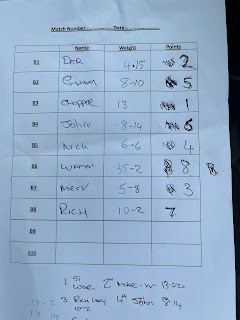 Match Number Date
Name Weight Points
B1 DER 4.15 2
B2 Graham 8-10 5
B3 CHOPPER 13 1
B4 JOHN 8-14 6
B5 Nick 6-6 4
B6 35-2 8
B7 MERV 5-8 3
B8 RICH 10-2 7
B9
B10
1st 2nd
3 Rich 4th John 8-14
10-2